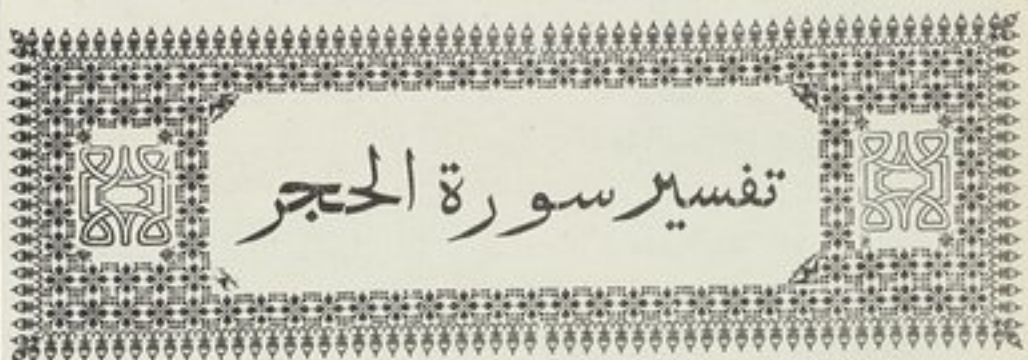 تفسير سورة الحجر